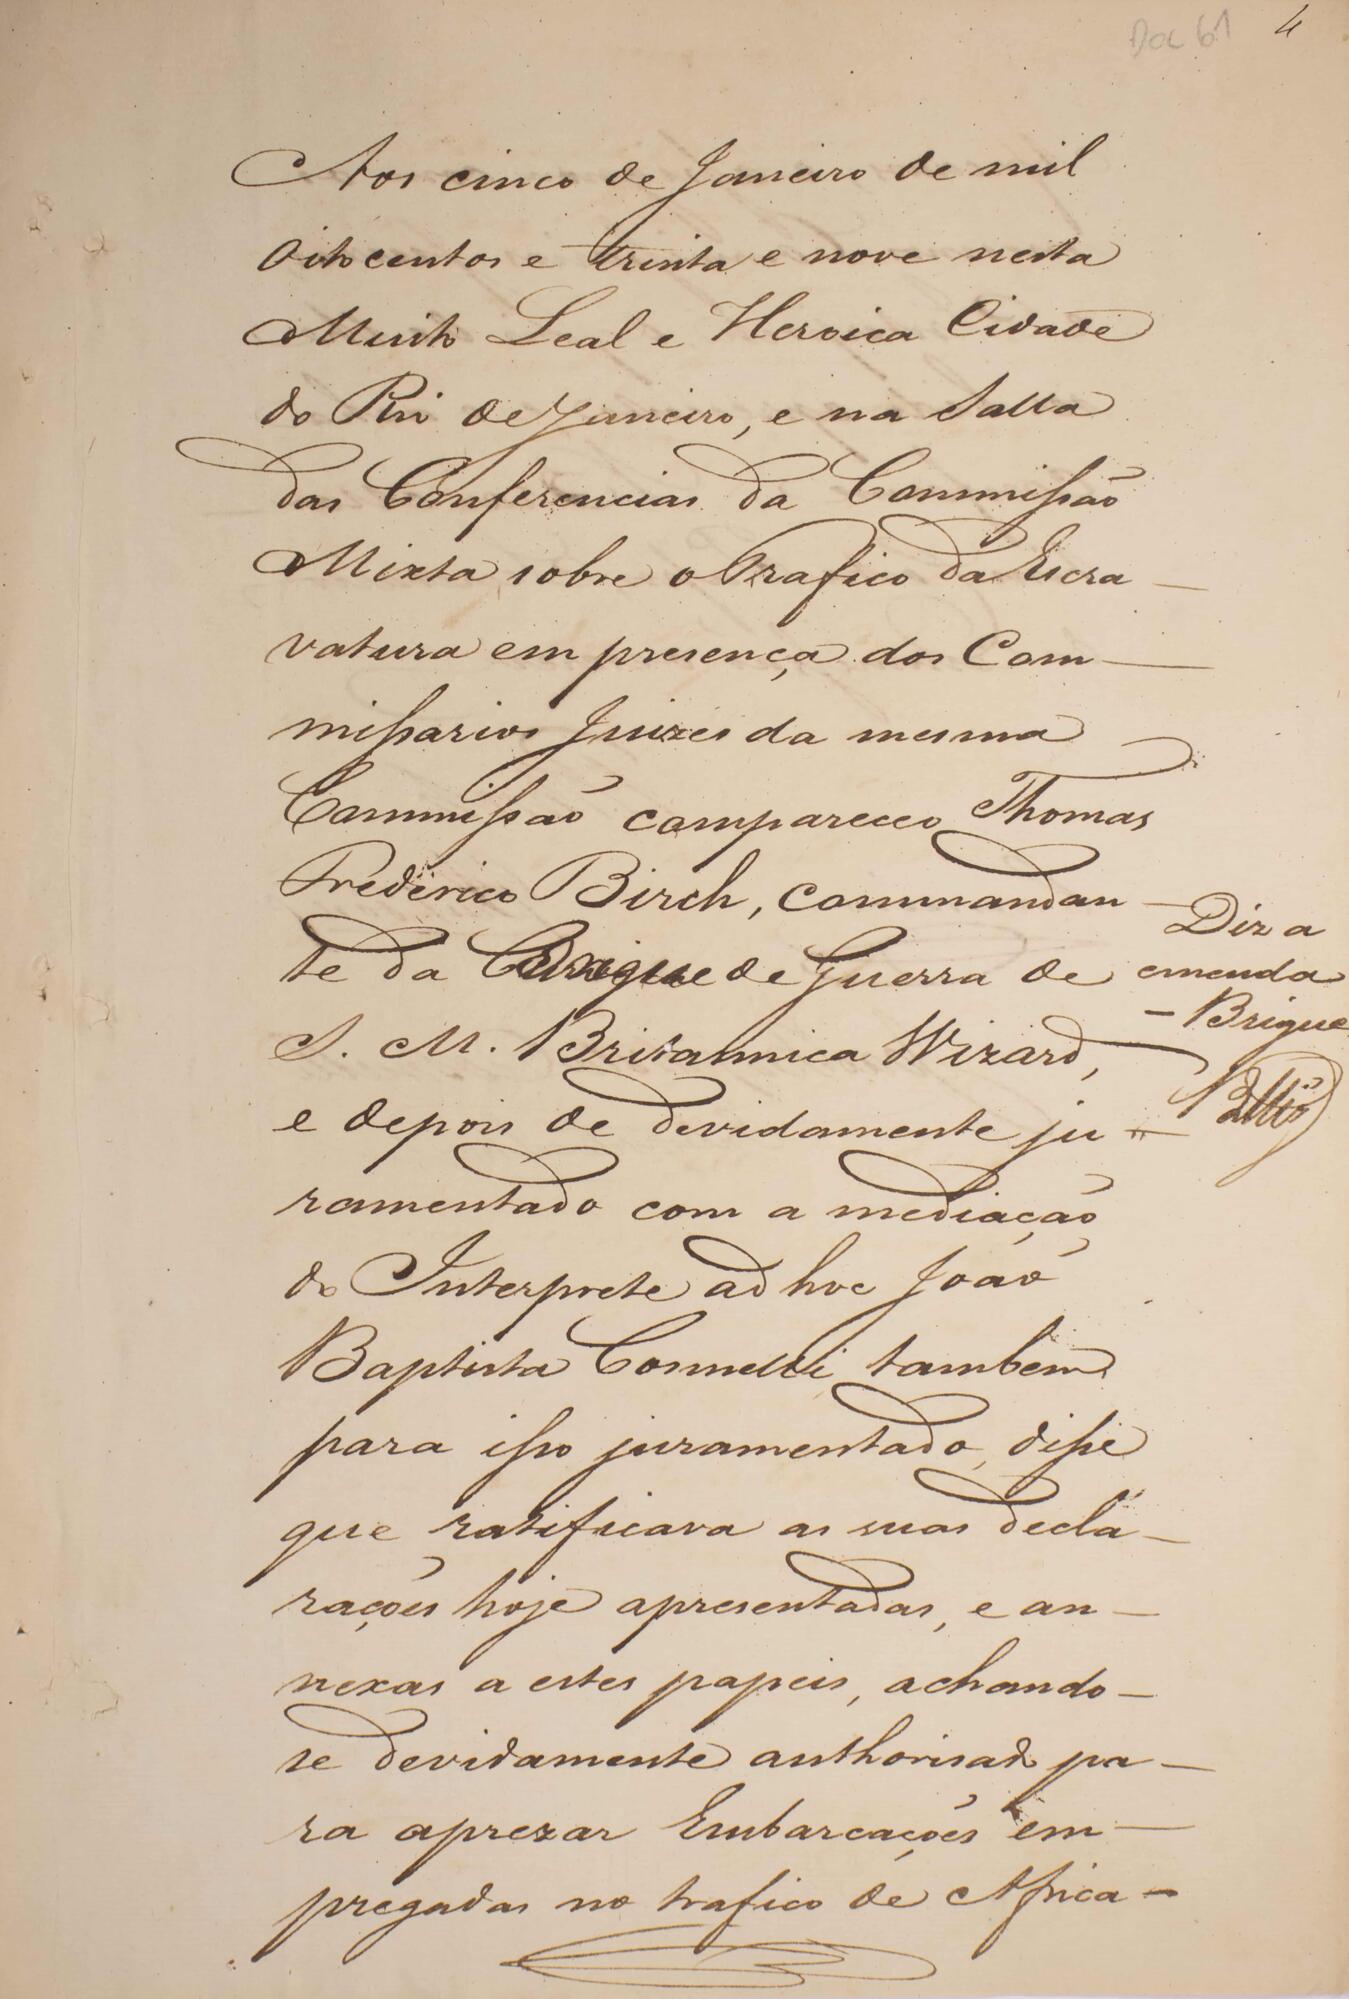 Doc 61 4
Aos cinco de Janeiro de mil
oitocentos e trinta e nove nesta
Muito Leal e Heroica Cidade
do Rio de Janeiro, e na Salla
das Conferencias da Commissão
Mixta sobre o Trafico da Escra
vatura em presença dos Com
missarios Juizes da mesma
Commissão compareceo Thomas
Frederico Birch, commandan
te da Brigue de Guerra de
S. M. Britannica Wizard,
e depois de devidamente ju
ramentado com a mediação
do Interprete ad hoc João
Baptista Connelli, tambem
para isso juramentado, disse
que ratificava as suas decla
rações hoje apresentadas, e an
nexas a estes papeis, achando
se devidamente authorisado pa
ra aprezar Embarcações em
pregadas no trafico de Africa
Diz a
emenda
- Brigue